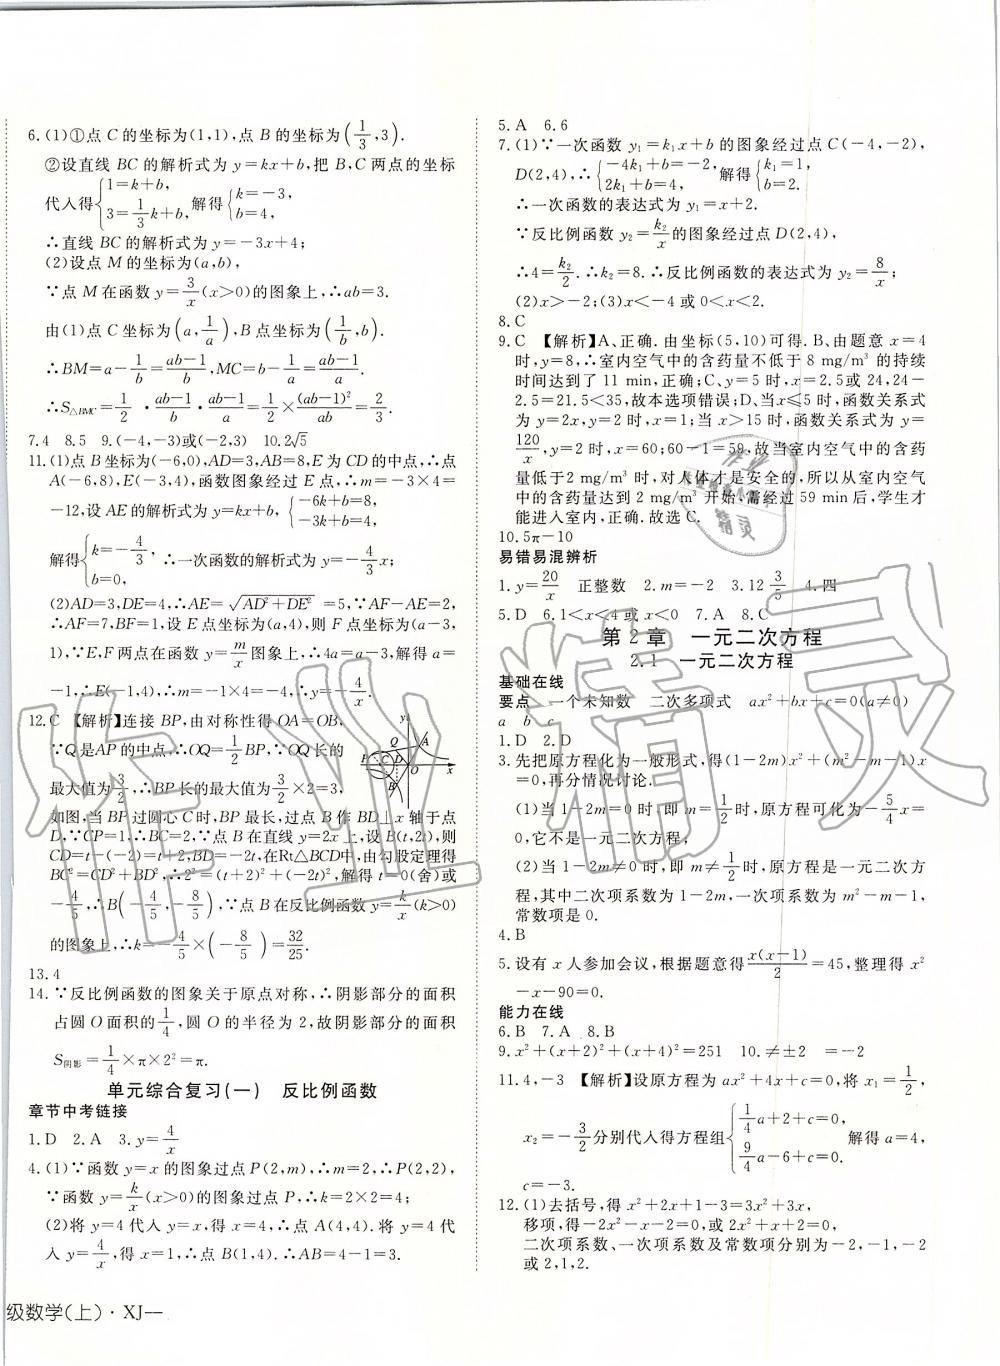 6.(1)①点 C 的坐标为(1,1),点 B 的坐标为(1/3,3).
②设直线 BC 的解析式为 y=kx+b,把 B,C 两点的坐标
代入得{1=k+b, 3=1/3k+b, 解得{k=-3, b=4,
∴直线 BC 的解析式为 y=-3x+4;
(2)设点 M 的坐标为(a,b),
∵点 M 在函数 y=3/x(x>0)的图象上,∴ab=3.
由(1)点 C 坐标为(a,1/a),B 点坐标为(1/b,b).
∴BM=a-1/b=(ab-1)/b,MC=b-1/a=(ab-1)/a.
∴S△BMC=1/2·(ab-1)/b·(ab-1)/a=1/2×(ab-1)²/ab=2/3.
7.4 8.5 9.(-4,-3)或(-2,3) 10.2√5
11.(1)点 B 坐标为(-6,0),AD=3,AB=8,E 为 CD 的中点,∴点
A(-6,8),E(-3,4),函数图象经过 E 点,∴m=-3×4=
-12,设 AE 的解析式为 y=kx+b,{-6k+b=8, -3k+b=4,
解得{k=-4/3, b=0, ∴一次函数的解析式为 y=-4/3x;
(2)AD=3,DE=4,∴AE=√(AD²+DE²)=5,∵AF-AE=2,
∴AF=7,BF=1,设 E 点坐标为(a,4),则 F 点坐标为(a-3,
1),∵E,F 两点在函数 y=m/x 图象上,∴4a=a-3,解得 a=
-1,∴E(-1,4),∴m=-1×4=-4,∴y=-4/x.
12.C 【解析】连接 BP,由对称性得 OA=OB,
∵Q 是AP 的中点,∴OQ=1/2BP,∵OQ 长的
最大值为3/2,∴BP长的最大值为3/2×2=3,
如图,当 BP 过圆心 C 时,BP 最长,过点 B 作 BD⊥x 轴于点
D,∵CP=1,∴BC=2,∵点 B 在直线 y=2x 上,设 B(t,2t),则
CD=t-(-2)=t+2,BD=-2t,在Rt△BCD中,由勾股定理得
BC²=CD²+BD²,∴2²=(t+2)²+(-2t)²,解得 t=0(舍)或
-4/5,∴B(-4/5,-8/5),∵点 B 在反比例函数 y=k/x(k>0)
的图象上,∴k=-4/5×(-8/5)=32/25.
13.4
14.∵反比例函数的图象关于原点对称,∴阴影部分的面积
占圆 O 面积的1/4,圆 O 的半径为 2,故阴影部分的面积
S阴影=1/4×π×2²=π.
单元综合复习(一) 反比例函数
章节中考链接
1.D 2.A 3.y=4/x
4.(1)∵函数 y=x 的图象过点 P(2,m),∴m=2,∴P(2,2),
∵函数 y=k/x(x>0)的图象过点 P,∴k=2×2=4;
(2)将 y=4 代入 y=x,得 x=4,∴点 A(4,4). 将 y=4 代
入 y=4/x,得 x=1,∴点 B(1,4).∴AB=4-1=3.
级数学(上)·XJ—
5.A 6.6
7.(1)∵一次函数 y₁=k₁x+b 的图象经过点 C(-4,-2),
D(2,4),∴{-4k₁+b=-2, 2k₁+b=4, 解得{k₁=1, b=2.
∴一次函数的表达式为 y₁=x+2.
∵反比例函数 y₂=k₂/x的图象经过点 D(2,4),
∴4=k₂/2.∴k₂=8.∴反比例函数的表达式为 y₂=8/x;
(2)x>-2;(3)x<-4 或 0<x<2.
8.C
9.C 【解析】A、正确. 由坐标(5,10)可得. B、由题意 x=4
时,y=8,∴室内空气中的含药量不低于 8 mg/m³ 的持续
时间达到了 11 min,正确;C、y=5时,x=2.5或 24,24-
2.5=21.5<35,故本选项错误;D、当 x≤5 时,函数关系式
为 y=2x,y=2 时,x=1;当 x>15 时,函数关系式为 y=
120/x,y=2 时,x=60;60-1=59,故当室内空气中的含药
量不低于 2 mg/m³ 时,对人体才是安全的,所以从室内空气
中的含药量达到 2 mg/m³ 开始,需经过 59 min 后,学生才
能进入室内,正确.故选 C.
10.5π-10
易错易混辨析
1.y=20/x 正整数 2.m=-2 3.12 3/5 4.四
5.D 6.1<x<4 或 x<0 7.A 8.C
第 2 章 一元二次方程
2.1 一元二次方程
基础在线
要点 一个未知数 二次多项式 ax²+bx+c=0(a≠0)
a b c
1.D 2.D
3.先把原方程化为一般形式,得(1-2m)x²+(m²-m-1)x
=0,再分情况讨论.
(1)当 1-2m=0 时,即 m=1/2时,原方程可化为-5/4x=
0,它不是一元二次方程;
(2)当 1-2m≠0 时,即 m≠1/2时,原方程是一元二次方
程,其中二次项系数为 1-2m,一次项系数为 m²-m-1,
常数项是 0.
4.B
5.设有 x 人参加会议,根据题意得x(x-1)/2=45,整理得 x²
-x-90=0.
能力在线
6.B 7.A 8.B
9.x²+(x+2)²+(x+4)²=251 10.≠±2 =-2
11.4,-3 【解析】设原方程为 ax²+4x+c=0,将 x₁=1/2,
x₂=-3/2分别代人得方程组{1/4a+2+c=0, 9/4a-6+c=0. 解得 a=4,
c=-3.
12.(1)去括号,得 x²+2x+1-3=3x²+3x,
移项,得-2x²-x-2=0,或 2x²+x+2=0,
二次项系数、一次项系数及常数项分别为-2,-1,-2
或 2,1,2.